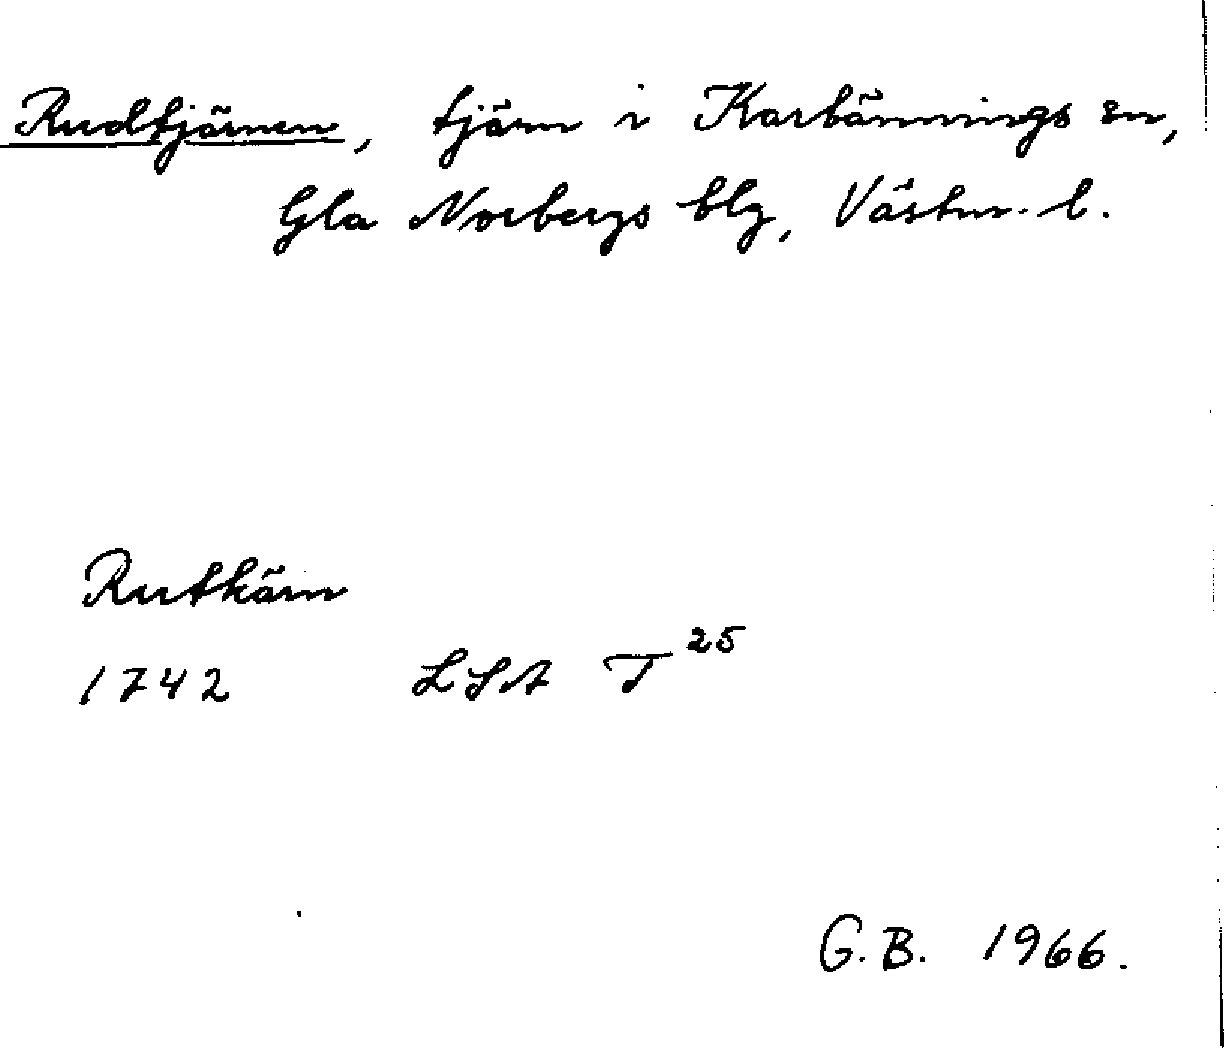 Rudtjärnen, tjärn i Karbännings sn,
Gla Norbergs blg, Västm. l.
Rutkärn
1742 LSA T 25
G.B. 1966.